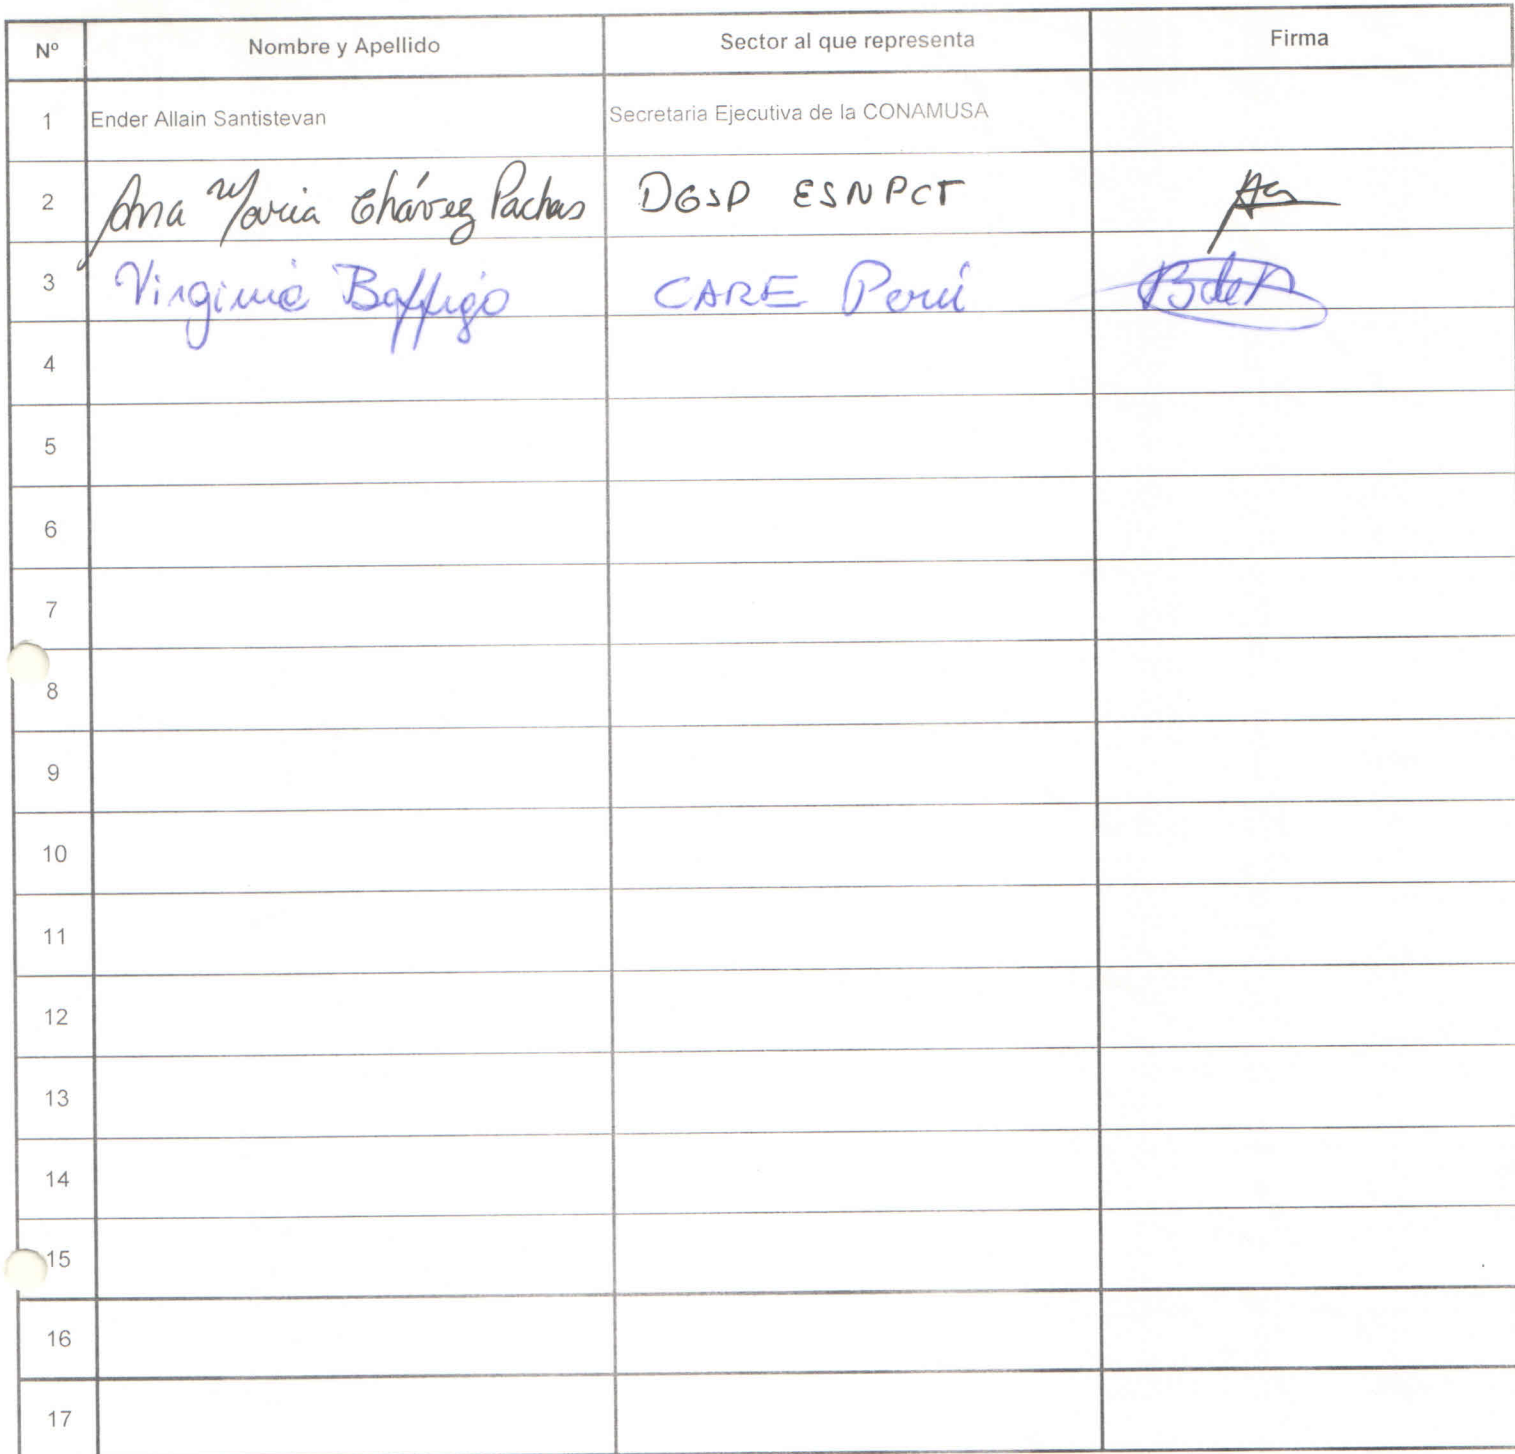 Nº Nombre y Apellido Sector al que representa Firma
1 Ender Allain Santistevan Secretaria Ejecutiva de la CONAMUSA
2 Ana Maria Chávez Pachas DGSP ESNPCT
3 Virginia Baffigo CARE Perú
4
5
6
7
8
9
10
11
12
13
14
15
16
17